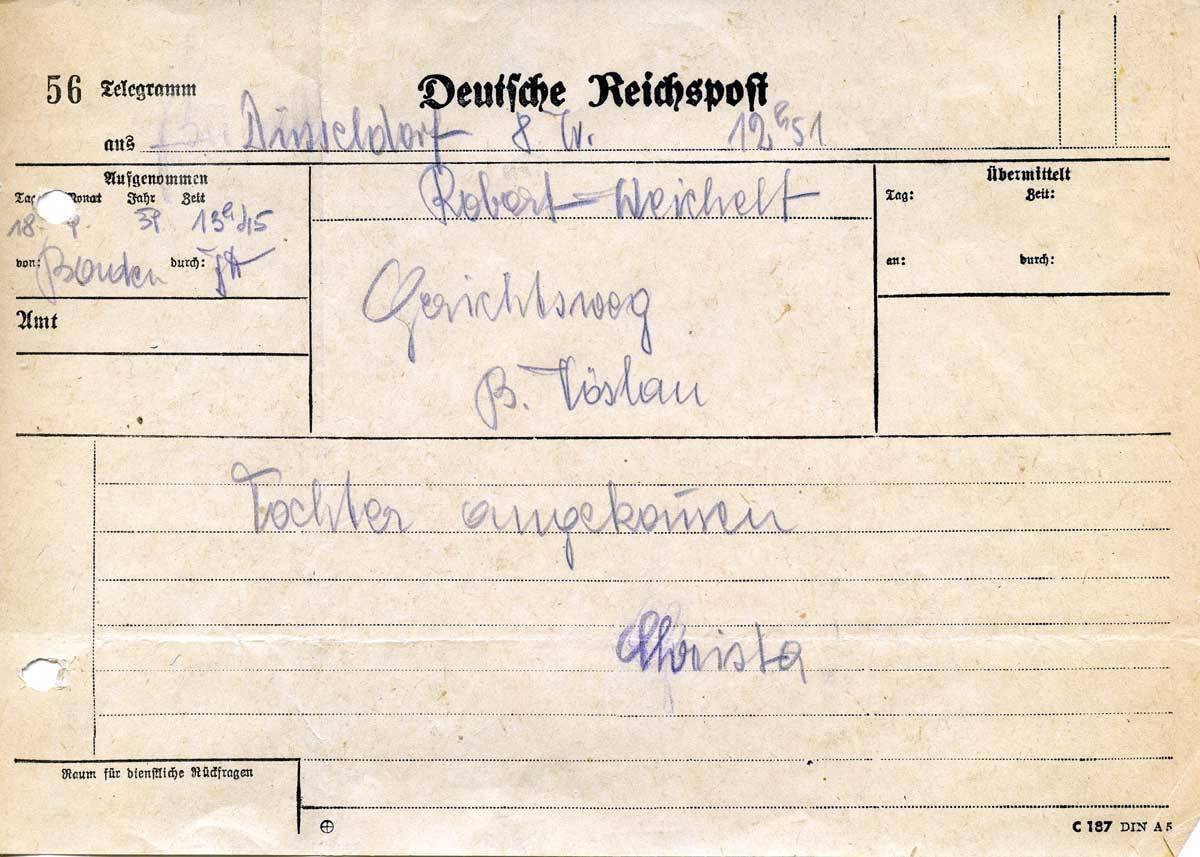 56 Telegramm Deutsche Reichspost
aus Düsseldorf 8 W. 12h51
Aufgenommen
Tag Monat Jahr Zeit
18. 9. 39 13h45
von: Baden durch:
Amt
Robert Weichelt
Gerichtsweg
B. Vöslau
Übermittelt
Tag: Zeit:
an: durch:
Tochter angekom̄en
Christa
Raum für dienstliche Rückfragen
C 187 DIN A 5